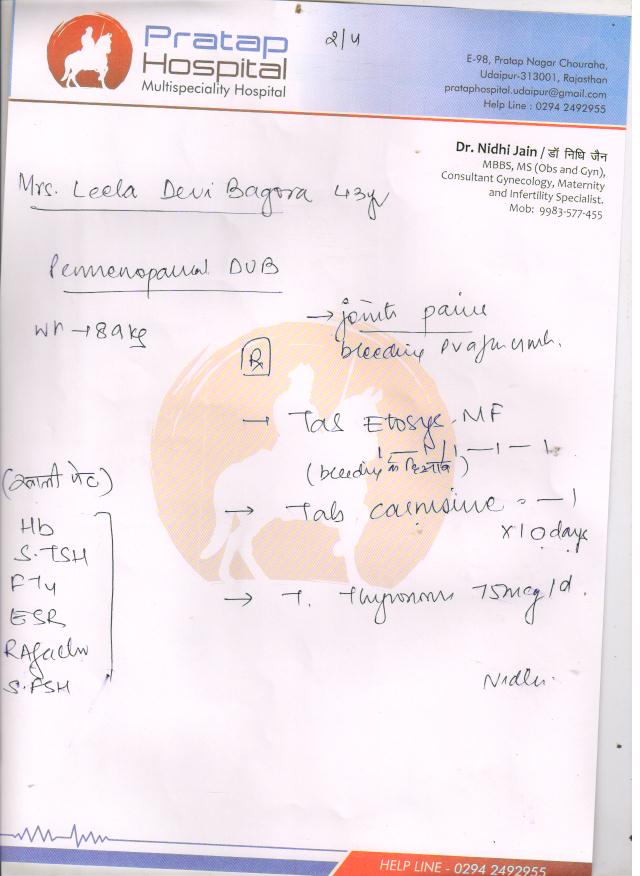 Pratap
Hospital
Multispeciality Hospital
2/4
E-98, Pratap Nagar Chouraha,
Udaipur-313001, Rajasthan
prataphospital.udaipur@gmail.com
Help Line : 0294 2492955
Dr. Nidhi Jain / डॉ निधि जैन
MBBS, MS (Obs and Gyn),
Consultant Gynecology, Maternity
and Infertility Specialist.
Mob: 9983-577-455
Mrs. Leela Devi Bagora 43y
Perimenopausal DUB
wt → 89kg
→ joints pain
bleeding
Rx
→ Tab Etosys MF
1 — 1 — 1
(bleeding के हिसाब)
→ Tab — 1
x 10 days
→ T. Thyronorm 75mcg/d.
(खाली पेट)
Hb
S.TSH
FT4
ESR
RA factor
S.FSH
Nidhi
HELP LINE - 0294 2492955